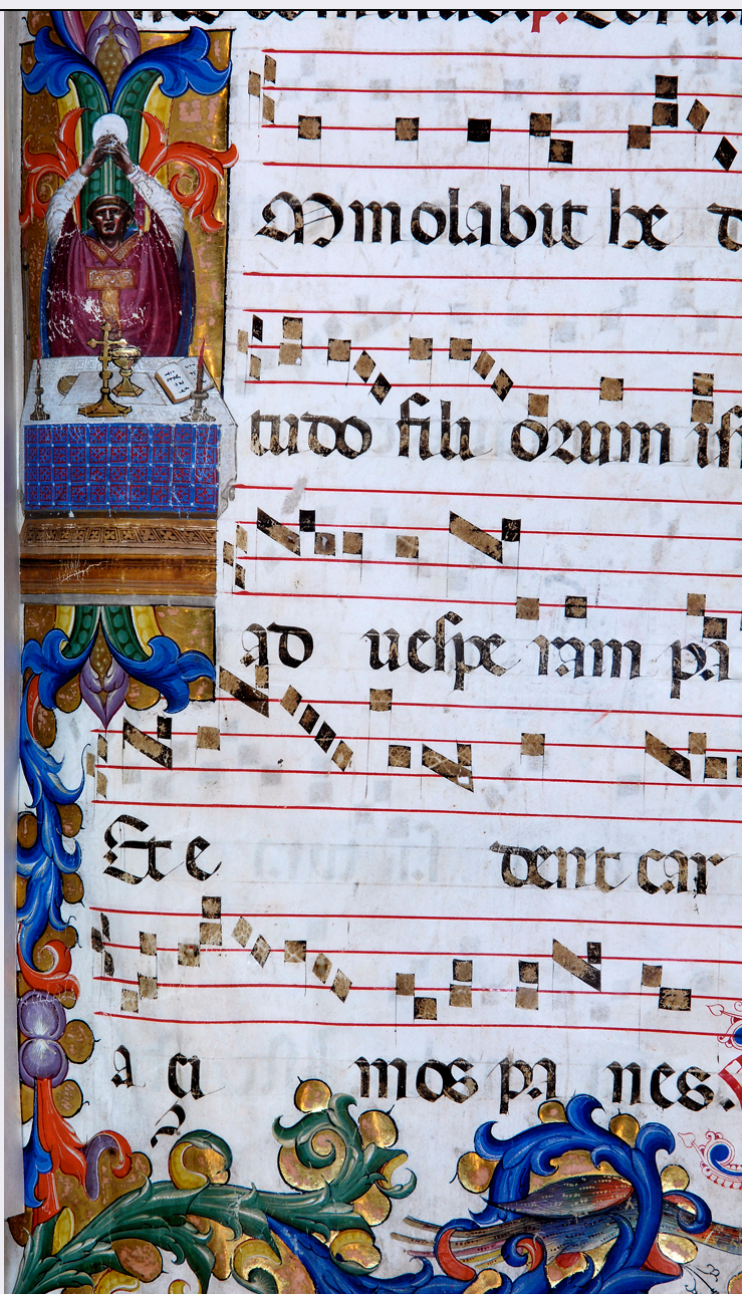 Mmolabit he
tudo filii orum
ad vespe ram pa
Et e dent car
a çi mos pa nes.